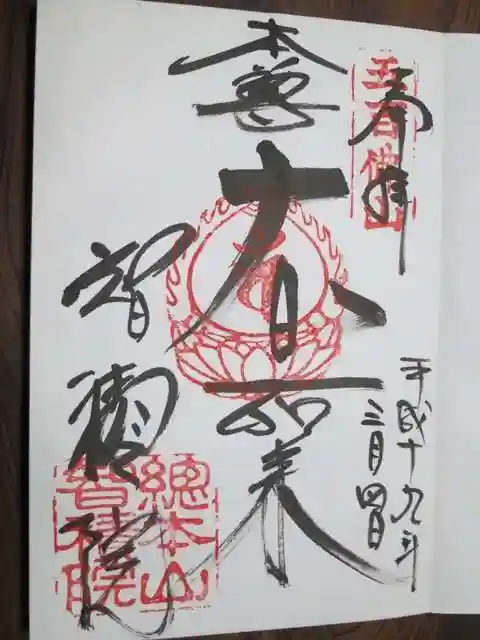 奉拝
五百佛山
平成十九年
三月四日
本尊
大日如来
智積院
總本山
智積院